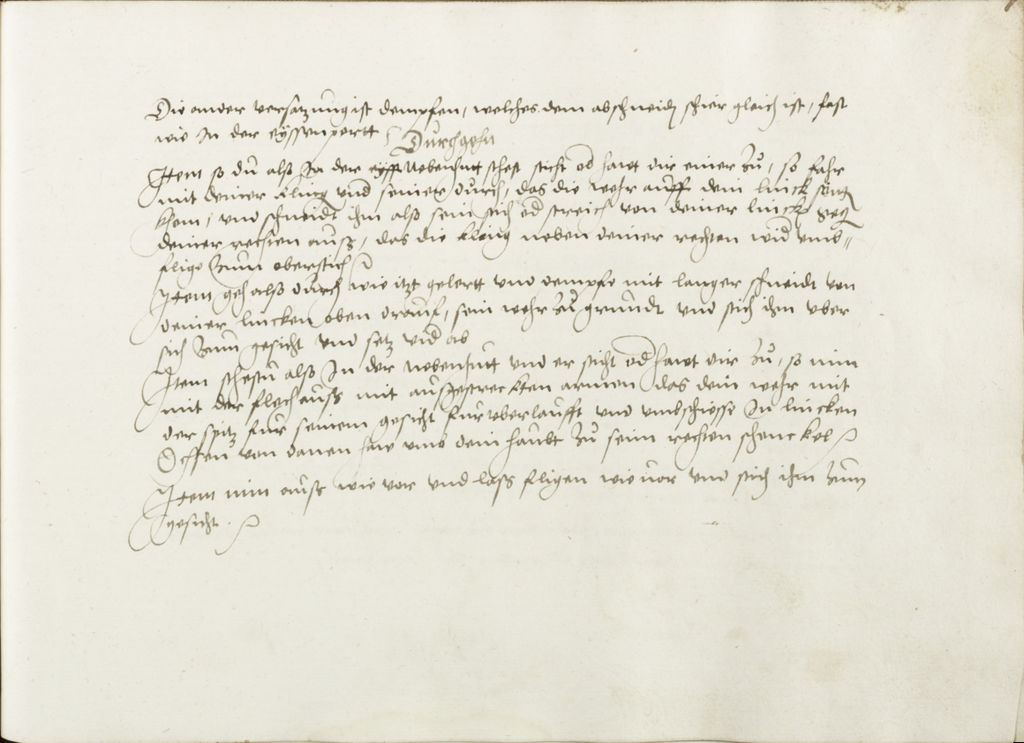 Die ander versatzung ist dempfen, welches dem abschneiden schier gleich ist, fast
wie In der eyssenportt
Durchgehn
Item so du alss In der Nebenhutt stehst sticht od hawt dir einer zu, so fahr
mit deiner kling vnd seiner durch, das die wehr auff dein linck seitt
khom, vnd schneidt ihm alss sein stich od streich von deiner linck
deiner rechten auss, das die kling neben deiner rechten wid vmb-
flige zum oberstich
Item geh alss durch wie itzt gelertt vnd dempfe mit langer schneidt von
deiner lincken oben drauf, sein wehr zu grundt vnd stich ihm vber
sich zum gesicht vnd setz wid ab
Item stehstu alss In der nebenhutt vnd er sticht od hawt dir zu, so nim
mit der flech auss mit aussgestreckten armen das dein wehr mit
der spitz fur seinem gesicht furvberlaufft vnd vmbschiesse In lincken
Ochssen von danen haw vmb dein haubt zu seim rechten schenckel
Item nim auss wie vor vnd lass fligen wie vor vnd stich ihm zum
gesicht.